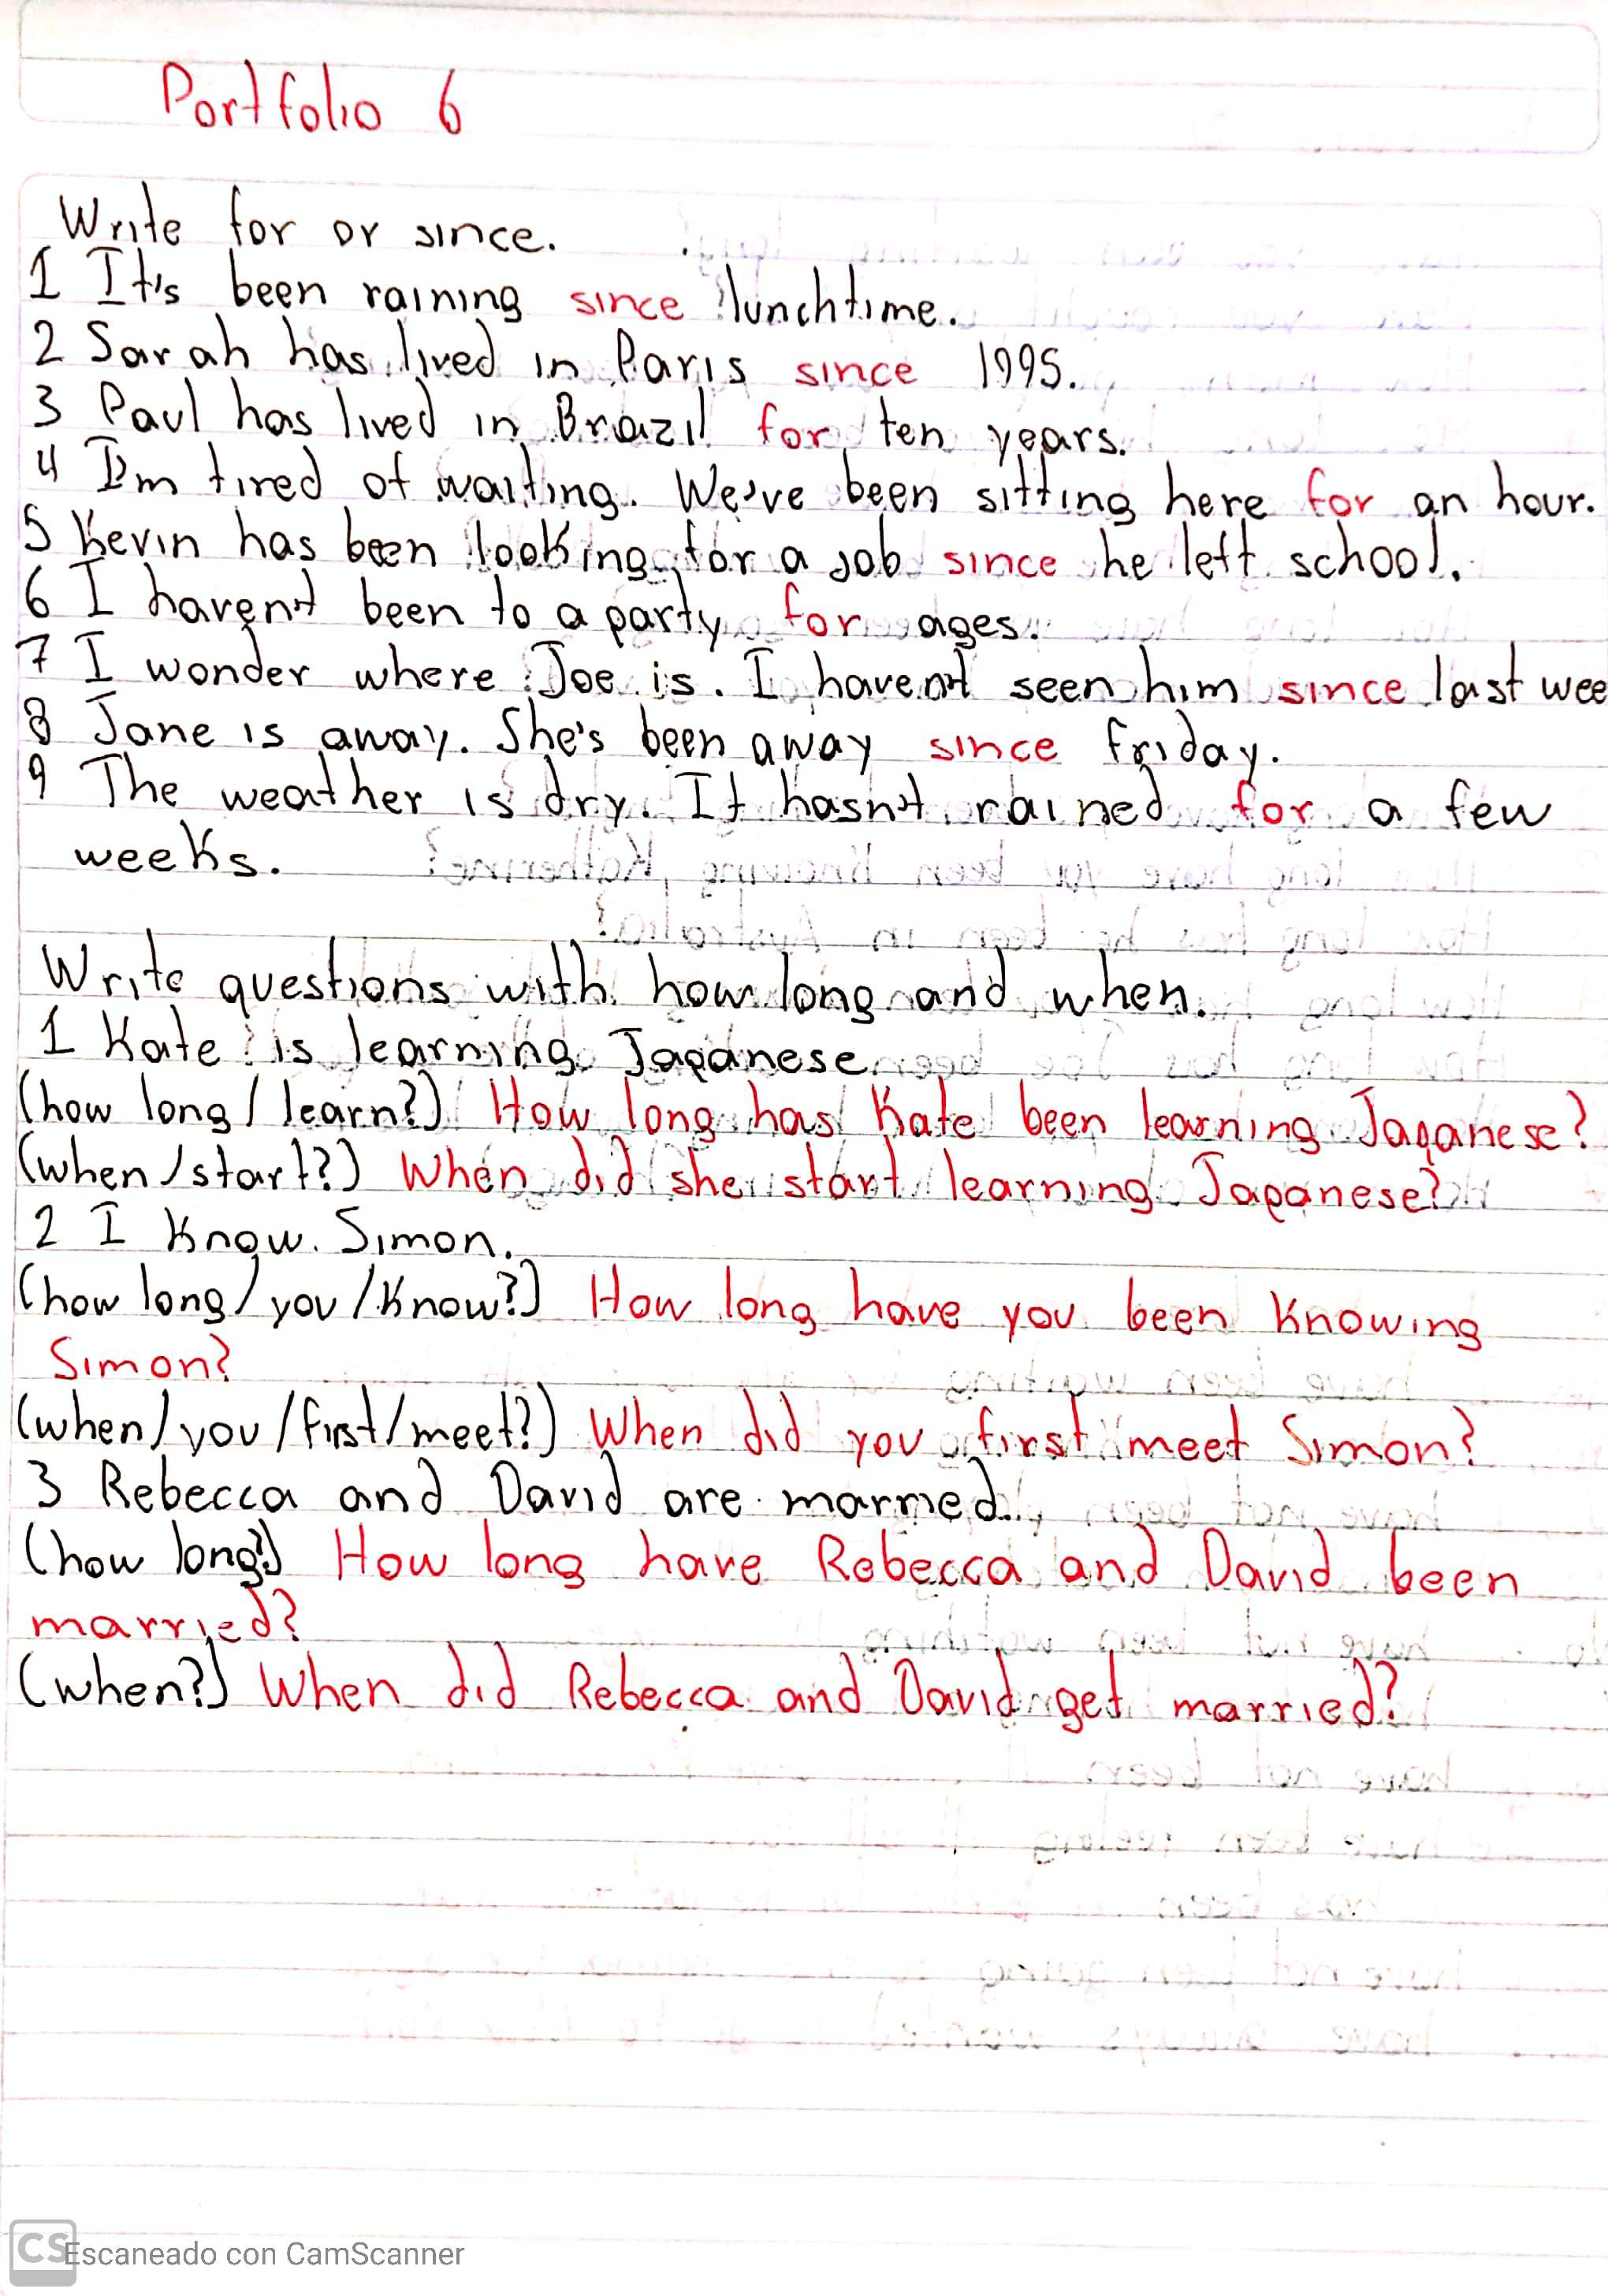 Portfolio 6
Write for or since.
1 It's been raining since lunchtime.
2 Sarah has lived in Paris since 1995.
3 Paul has lived in Brazil for ten years.
4 I'm tired of waiting. We've been sitting here for an hour.
5 Kevin has been looking for a job since he left school.
6 I haven't been to a party for ages.
7 I wonder where Joe is. I haven't seen him since last wee
8 Jane is away. She's been away since friday.
9 The weather is dry. It hasn't rained for a few
weeks.
Write questions with how long and when.
1 Kate is learning Japanese
(how long / learn?) How long has Kate been learning Japanese?
(when / start?) When did she start learning Japanese?
2 I know Simon.
(how long / you / know?) How long have you been knowing
Simon?
(when / you / first / meet?) When did you first meet Simon?
3 Rebecca and David are married.
(how long?) How long have Rebecca and David been
married?
(when?) When did Rebecca and David get married?
CS Escaneado con CamScanner